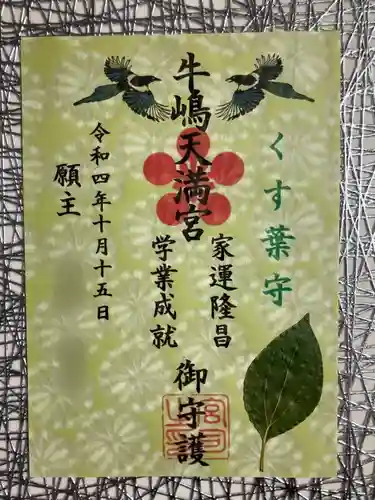 くす葉守
家運隆昌
牛嶋天満宮
学業成就
御守護
令和四年十月十五日
願主